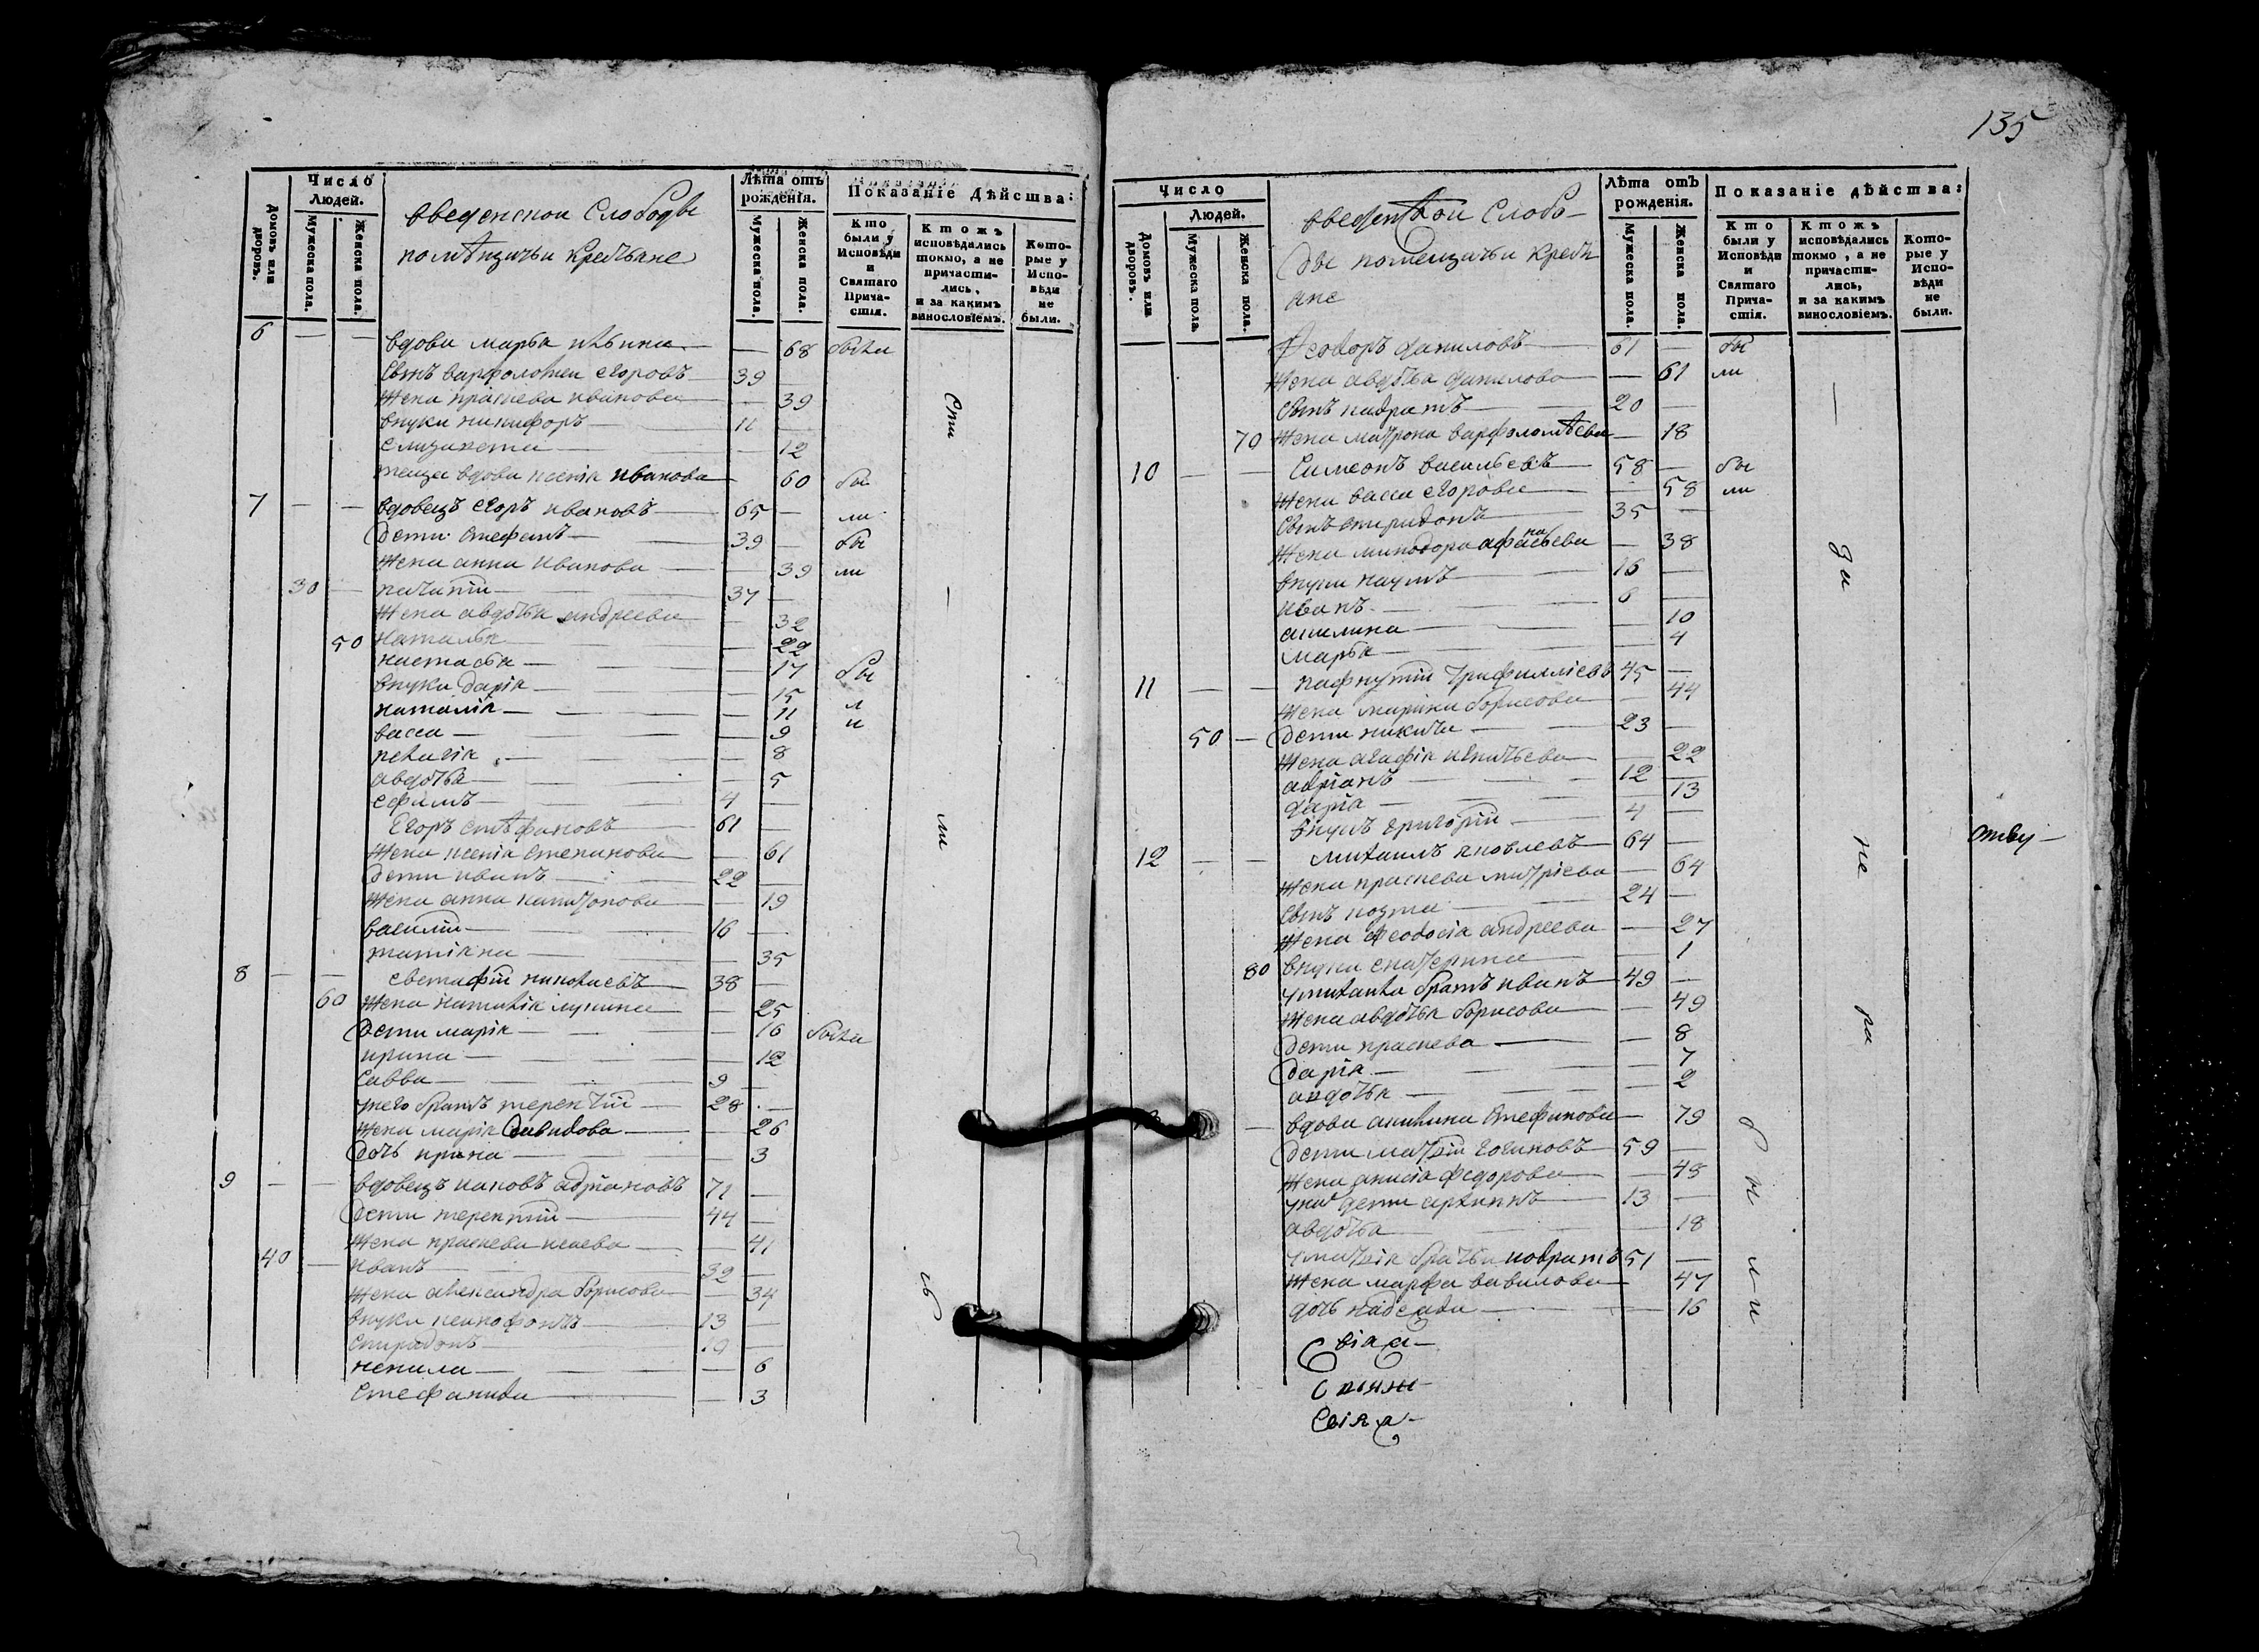 135
Число
Людей.
Домовъ или дворовъ.
Мужеска пола.
Женска пола.
введенскои Слободы
помѣщичьи крестьяне
Лѣта отъ рожденія.
Мужеска пола.
Женска пола.
Показаніе дѣйства:
Кто были у Исповѣди и Святаго Причастія.
Ктожъ исповѣдались токмо, а не причастились, и за какимъ винословіемъ.
Которые у Исповѣди не были.
6 — — вдова марья — 68 были
Сынъ варфоломеи егоровъ 39 —
Жена праскева иванова — 39
внуки никифоръ 11 —
елизавета — 12
теща вдова ксенія иванова — 60 бы
7 — — вдовецъ егоръ ивановъ 65 — ли
Дети Стефанъ 39 — бы
Жена анна иванова — 39 ли
30 — игнатіи 37 —
Жена авдотья андреева — 32
50 наталья — 22
настасья — 17 бы
внуки дарія — 15 л
наталія — 11 и
васса — 9
пелагія — 8
авдотья — 5
ефимъ 4 —
Егоръ Стефановъ 61 —
Жена ксенія Степанова — 61
Дети иванъ 22 —
Жена анна — 19
василіи 16 —
татіяна — 35
8 — — евстафіи николаевъ 38 —
60 Жена наталія лукина — 25
Дети марія — 16 были
ирина — 12
Савва 9 —
у него братъ терентіи 28 —
Жена марія Давидова — 26
Дочь ирина — 3
9 — — вдовецъ іаковъ адріановъ 71 —
Дети терентіи 44 —
Жена праскева исаева — 41
40 — иванъ 32 —
Жена александра борисова — 34
внуки ксенофонтъ 13 —
Спиридонъ 9 —
ненила — 6
Стефанида — 3
Число
Людей.
Домовъ или дворовъ.
Мужеска пола.
Женска пола.
введенской Слобо-
ды помещичьи крестья
ане
Лѣта отъ рожденія.
Мужеска пола.
Женска пола.
Показаніе дѣйства:
Кто были у Исповѣди и Святаго Причастія.
Ктожъ исповѣдались токмо, а не причастились, и за какимъ винословіемъ.
Которые у Исповѣди не были.
Феодоръ даниловъ 61 — бы
Жена авдотья данилова — 61 ли
Сынъ кодратъ 20 —
70 Жена матрона варфоломѣева — 18
10 — — Симеонъ васильевъ 58 — бы
Жена васса егорова — 58 ли
Сынъ спиридонъ 35 —
Жена минодора афанасьева — 38
внуки наумъ 16 —
иванъ 6 —
акилина — 10
марья — 4
11 — — пафнутіи трифилліевъ 45 —
Жена марина борисова — 44
50 — Дети никита 23 —
Жена агафія игнатьева — 22
адріанъ 12 —
дарія — 13
внукъ григоріи 4 —
12 — — михаилъ яковлевъ 64 —
Жена праскева митріева — 64
Сынъ козма 24 —
Жена феодосія андреева — 27
80 внука екатерина — 1
у михаила братъ иванъ 49 —
Жена авдотья борисова — 49
Дети праскева — 8
дарія — 7
авдотья — 2
— вдова акилина Стефанова — 79
Дети матѳіи 59 —
Жена анисія федорова — 48
у ни дети архиппъ 13 —
авдотья — 18
у матѳія братъ кодратъ 51 —
Жена марфа вавилова — 47
дочь надежда — 16